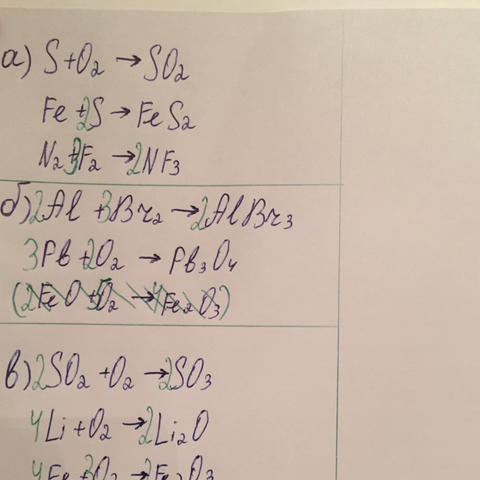 а) S+O₂ → SO₂
Fe + 2S → FeS₂
N₂ + 3F₂ → 2NF₃
б) 2Al + 3Br₂ → 2AlBr₃
3Pb + 2O₂ → Pb₃O₄
(2FeO + 5O₂ → 4Fe₂O₃)
в) 2SO₂ + O₂ → 2SO₃
4Li + O₂ → 2Li₂O
4Fe + 3O₂ → 2Fe₂O₃